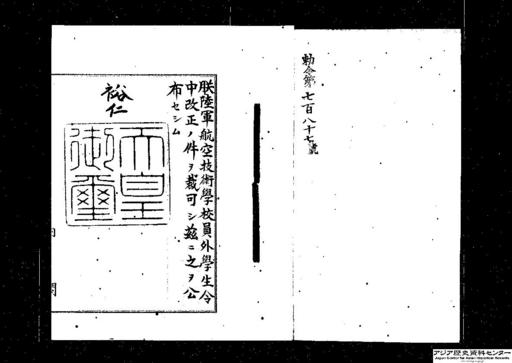 勅令第七百八十七號
朕陸軍航空技術學校員外學生令
中改正ノ件ヲ裁可シ茲ニ之ヲ公
布セシム
裕仁
天皇
御璽
内
閣
アジア歴史資料センター
Japan Center for Asian Historical Records